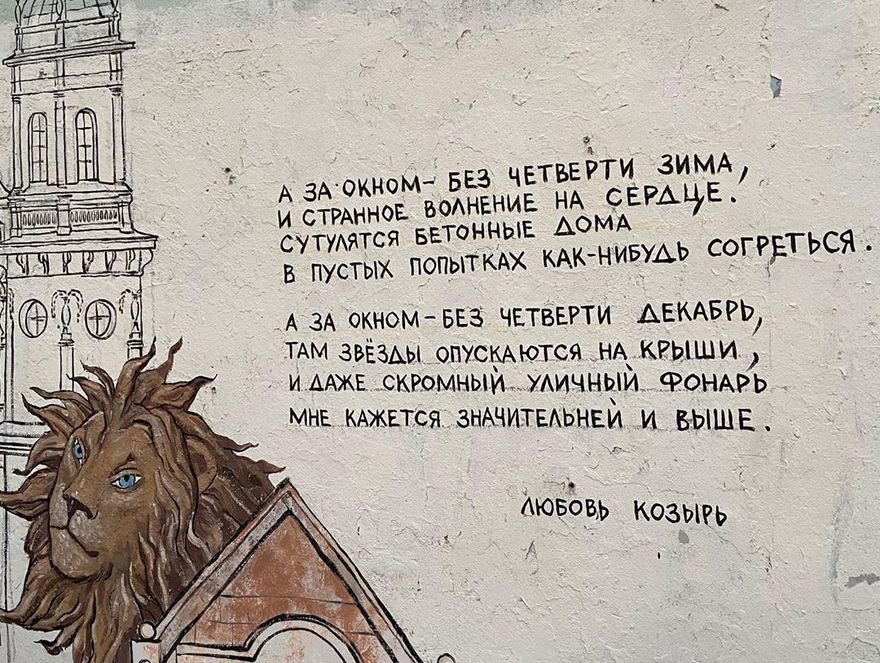 А ЗА ОКНОМ – БЕЗ ЧЕТВЕРТИ ЗИМА,
И СТРАННОЕ ВОЛНЕНИЕ НА СЕРДЦЕ.
СУТУЛЯТСЯ БЕТОННЫЕ ДОМА
В ПУСТЫХ ПОПЫТКАХ КАК-НИБУДЬ СОГРЕТЬСЯ.
А ЗА ОКНОМ – БЕЗ ЧЕТВЕРТИ ДЕКАБРЬ,
ТАМ ЗВЁЗДЫ ОПУСКАЮТСЯ НА КРЫШИ,
И ДАЖЕ СКРОМНЫЙ УЛИЧНЫЙ ФОНАРЬ
МНЕ КАЖЕТСЯ ЗНАЧИТЕЛЬНЕЙ И ВЫШЕ.
ЛЮБОВЬ КОЗЫРЬ